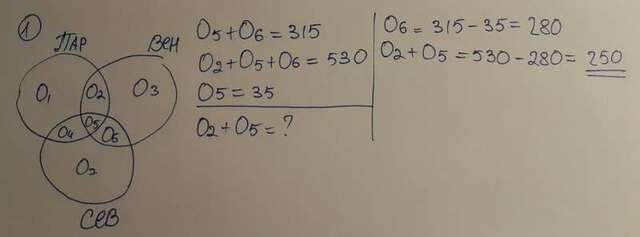 1
ПАР
ВЕН
O1
O2
O3
O4
O5
O6
O7
СЕВ
O5+O6=315
O2+O5+O6=530
O5=35
O2+O5=?
O6=315-35=280
O2+O5=530-280=250